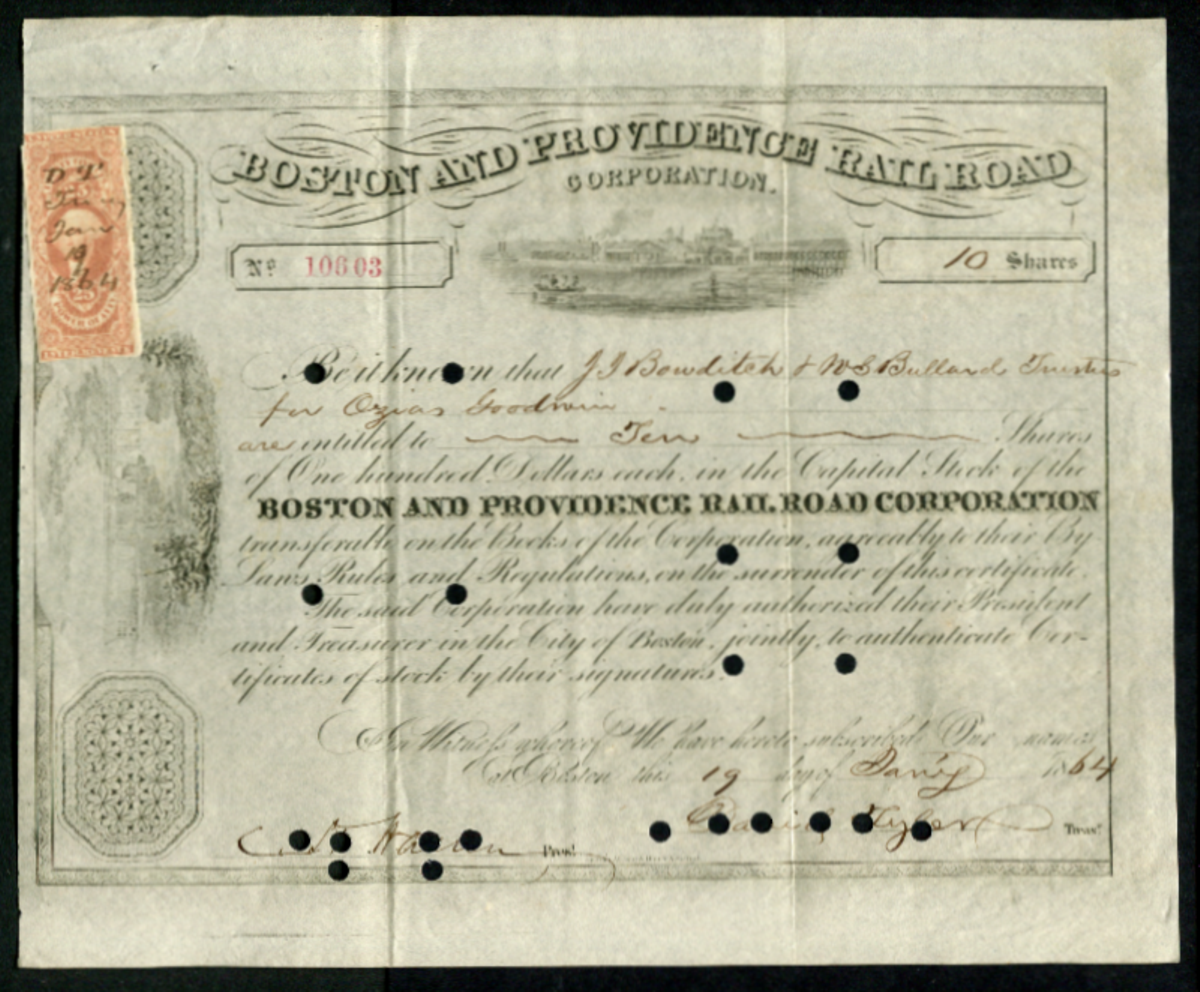 BOSTON AND PROVIDENCE RAIL ROAD
CORPORATION.
No. 10603
10 Shares
D T
Jan
19
1864
Be it known that J I Bowditch & W S Bullard Trustees
for Ozias Goodwin
are entitled to Ten Shares
of One hundred Dollars each, in the Capital Stock of the
BOSTON AND PROVIDENCE RAIL ROAD CORPORATION
transferable on the Books of the Corporation, agreeably to their By
Laws, Rules and Regulations, on the surrender of this certificate.
The said Corporation have duly authorized their President
and Treasurer in the City of Boston, jointly, to authenticate Cer-
tificates of stock by their signatures.
In Witness whereof We have hereto subscribed Our names
at Boston this 19 day of Jan'y 1864
Daniel Tyler Treasr.
Prest.